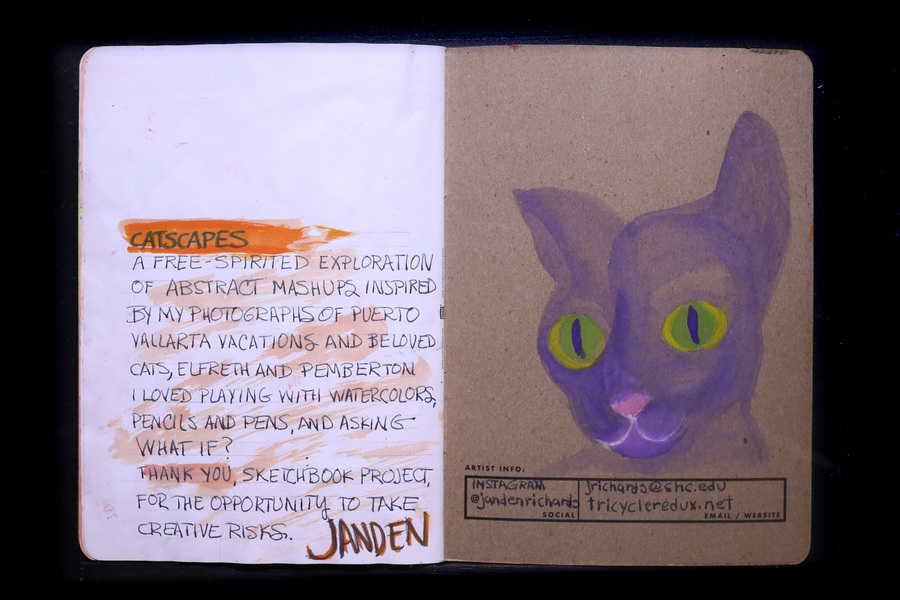 CATSCAPES
A FREE-SPIRITED EXPLORATION
OF ABSTRACT MASHUPS INSPIRED
BY MY PHOTOGRAPHS OF PUERTO
VALLARTA VACATIONS AND BELOVED
CATS, ELFRETH AND PEMBERTON
I LOVED PLAYING WITH WATERCOLORS,
PENCILS AND PENS, AND ASKING
WHAT IF?
THANK YOU, SKETCHBOOK PROJECT,
FOR THE OPPORTUNITY TO TAKE
CREATIVE RISKS.
JANDEN
ARTIST INFO:
INSTAGRAM
@jandenrichards
SOCIAL
jrichards@shc.edu
tricycleredux.net
EMAIL / WEBSITE